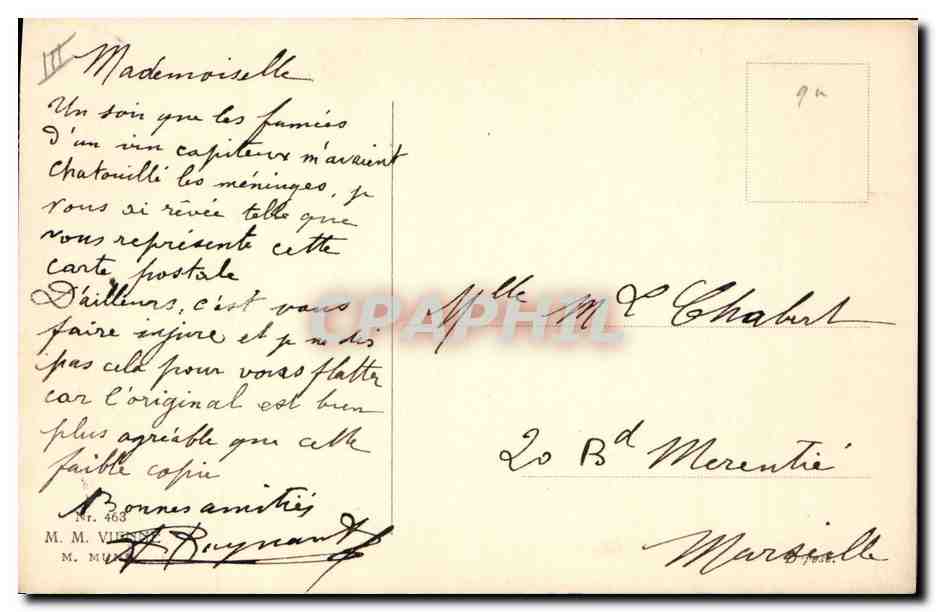 III
Mademoiselle
Un soir que les fumées
d'un vin capiteux m'avaient
chatouillé les méninges, je
vous ai rêvée telle que
vous représente cette
carte postale
D'ailleurs, c'est vous
faire injure et je ne dis
pas cela pour vous flatter
car l'original est bien
plus agréable que cette
faible copie
Bonnes amitiés
Nr. 463
M. M. VIENNE
M. MUNK
Mlle Mle Chabert
20 Bd Merentié
Marseille
CPAPHIL